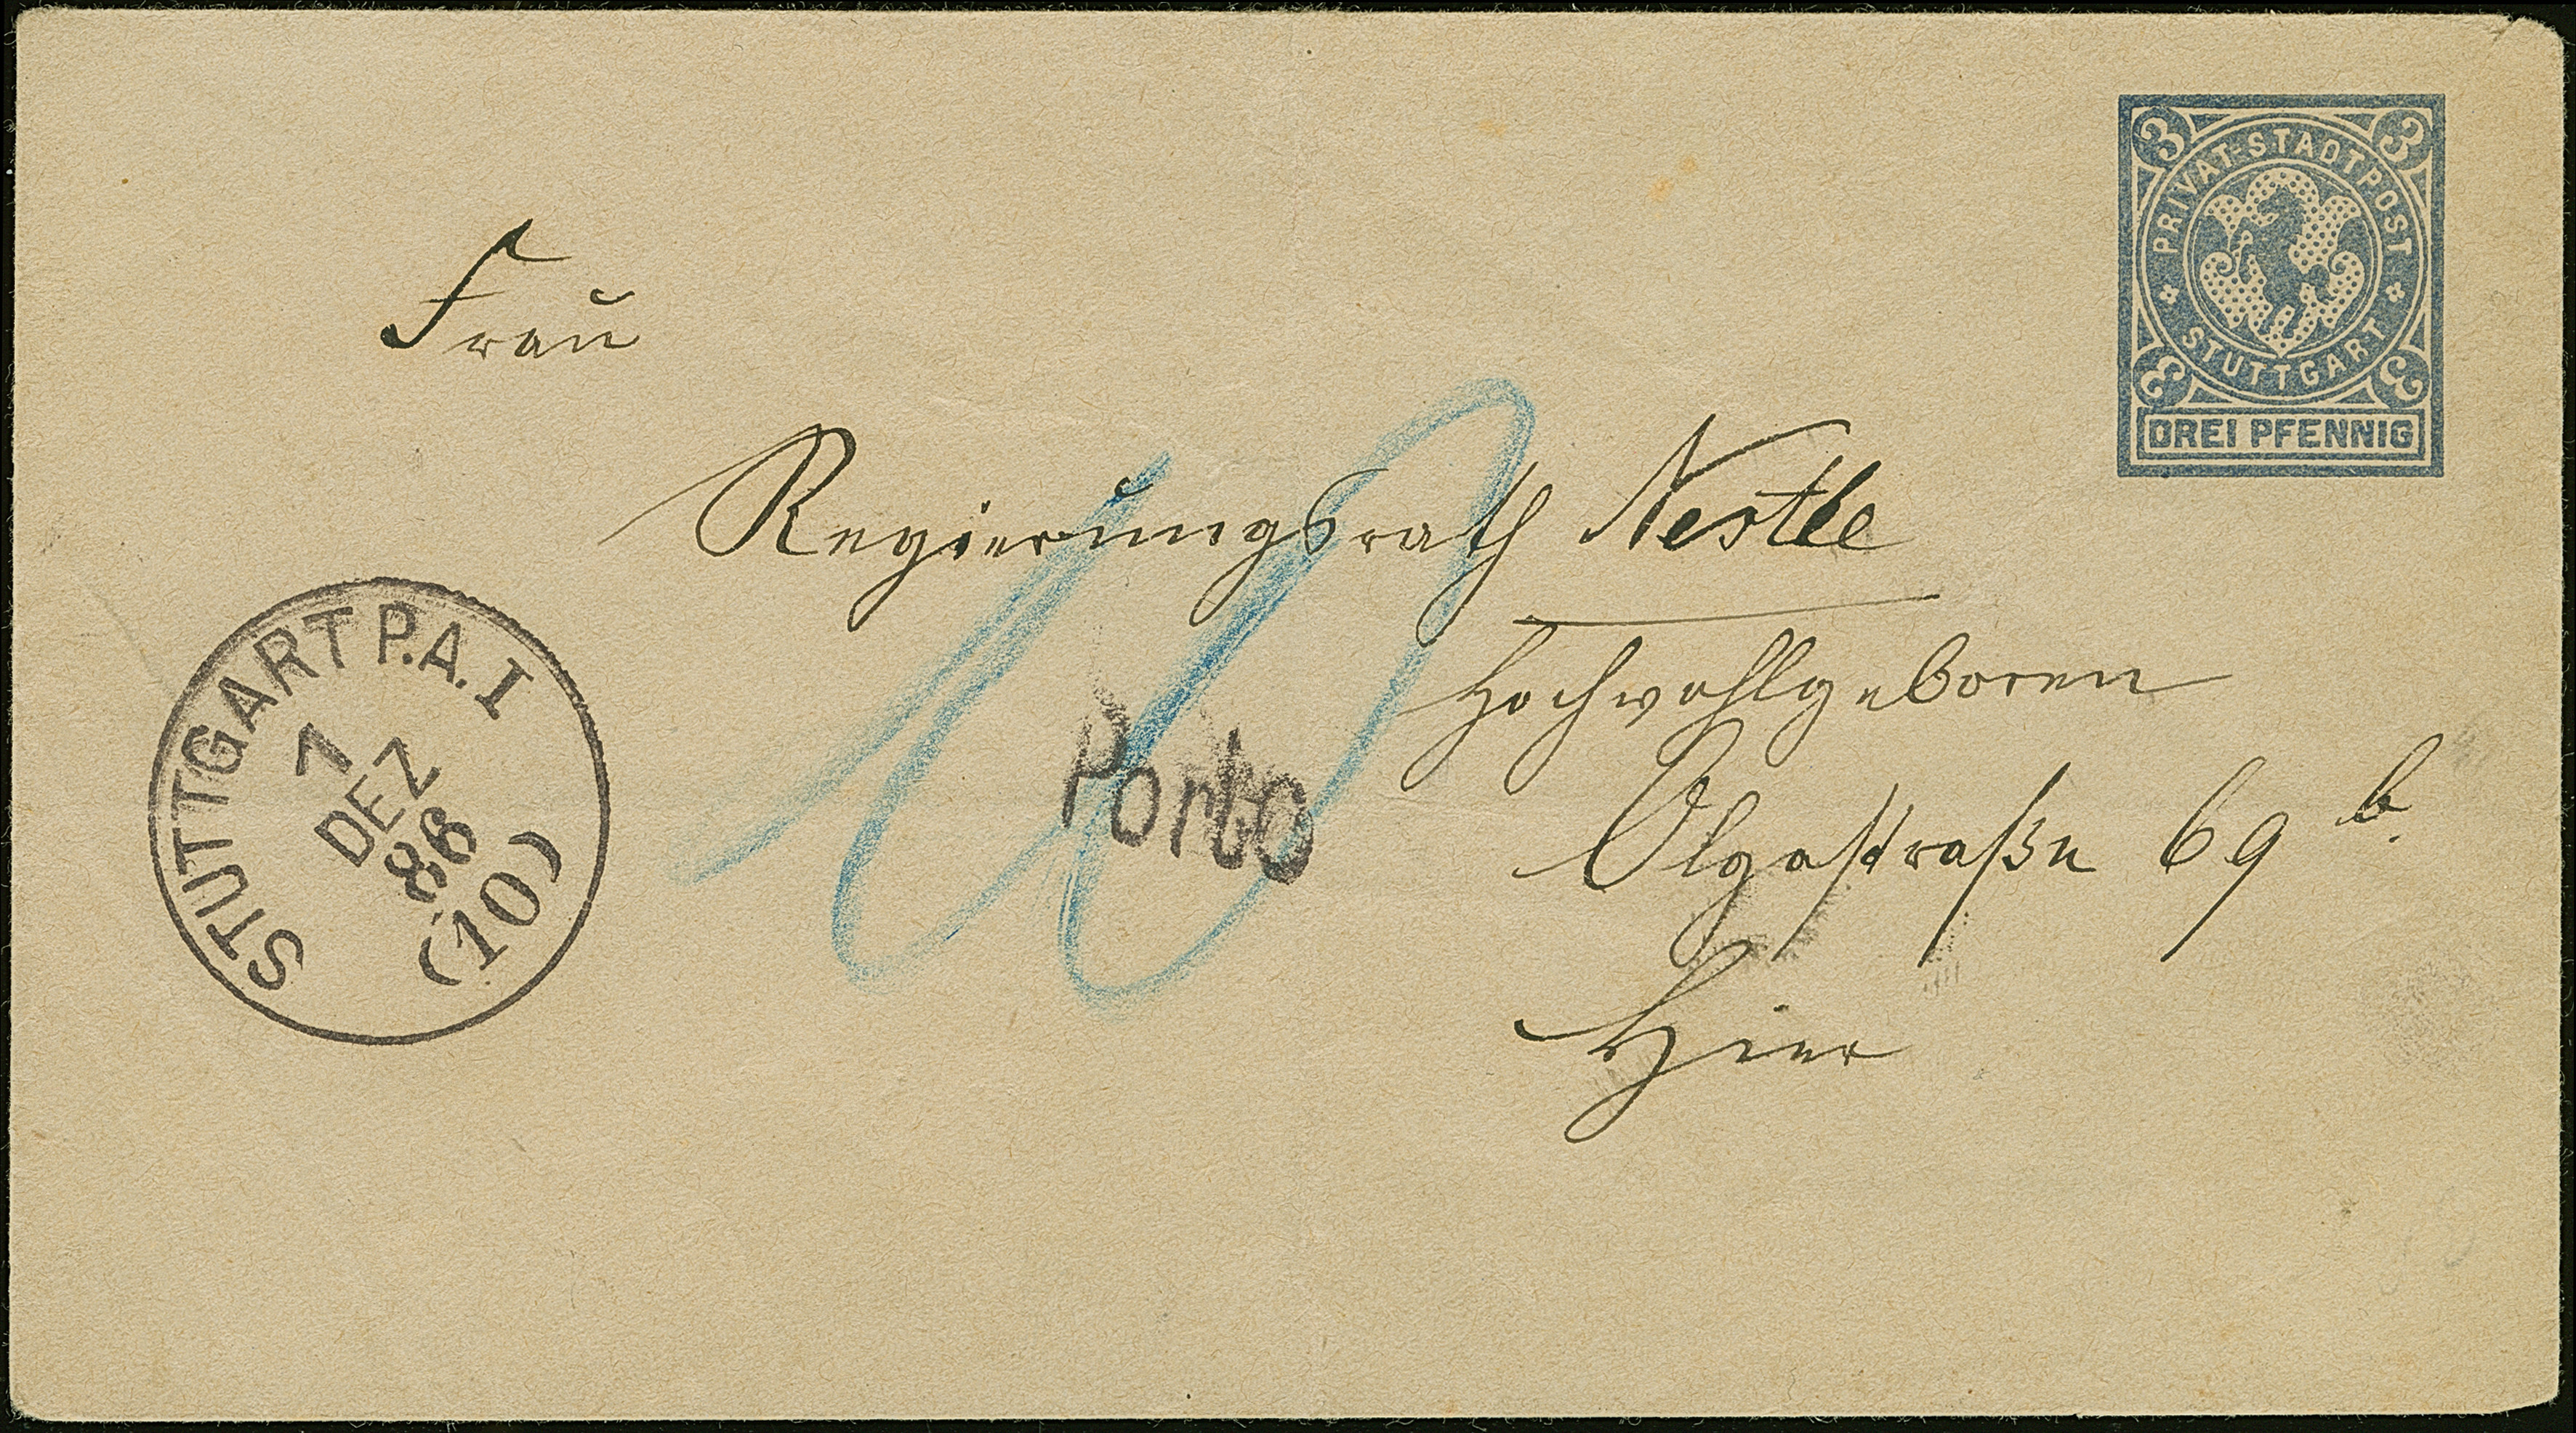 3 3
PRIVAT-STADTPOST
STUTTGART
3 3
DREI PFENNIG
Frau
Regierungsrath Nestle
Hochwohlgeboren
Olgastraße 69 b.
Hier
10
Porto
STUTTGART P.A. I
7
DEZ
86
(10)